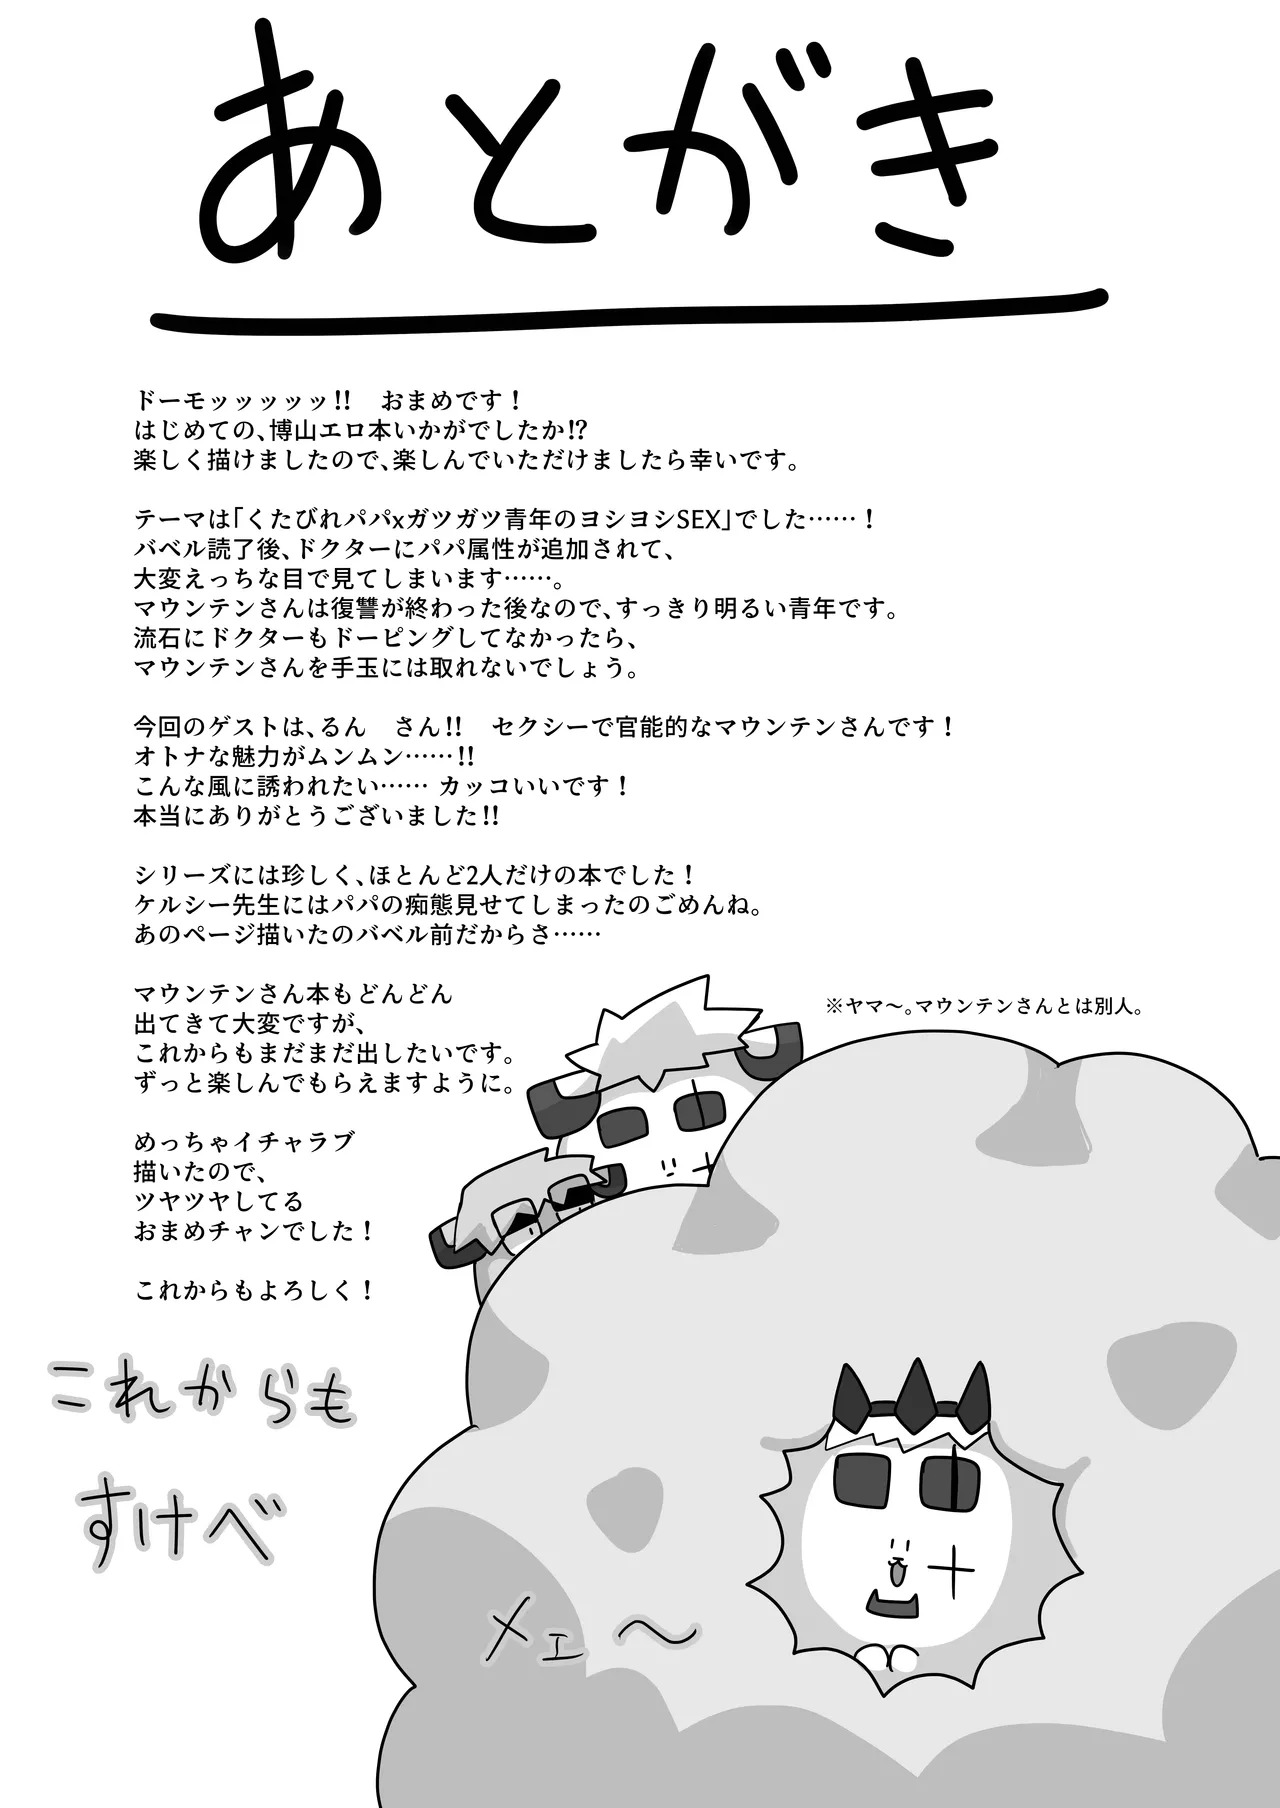 あとがき
ドーモッッッッッ!!　おまめです！
はじめての、博山エロ本いかがでしたか!?
楽しく描けましたので、楽しんでいただけましたら幸いです。
テーマは「くたびれパパxガツガツ青年のヨシヨシSEX」でした……！
バベル読了後、ドクターにパパ属性が追加されて、
大変えっちな目で見てしまいます……。
マウンテンさんは復讐が終わった後なので、すっきり明るい青年です。
流石にドクターもドーピングしてなかったら、
マウンテンさんを手玉には取れないでしょう。
今回のゲストは、るん　さん!!　セクシーで官能的なマウンテンさんです！
オトナな魅力がムンムン……!!
こんな風に誘われたい…… カッコいいです！
本当にありがとうございました!!
シリーズには珍しく、ほとんど2人だけの本でした！
ケルシー先生にはパパの痴態見せてしまったのごめんね。
あのページ描いたのバベル前だからさ……
マウンテンさん本もどんどん
出てきて大変ですが、
これからもまだまだ出したいです。
ずっと楽しんでもらえますように。
めっちゃイチャラブ
描いたので、
ツヤツヤしてる
おまめチャンでした！
これからもよろしく！
※ヤマ〜。マウンテンさんとは別人。
これからも
すけべ
メェ〜